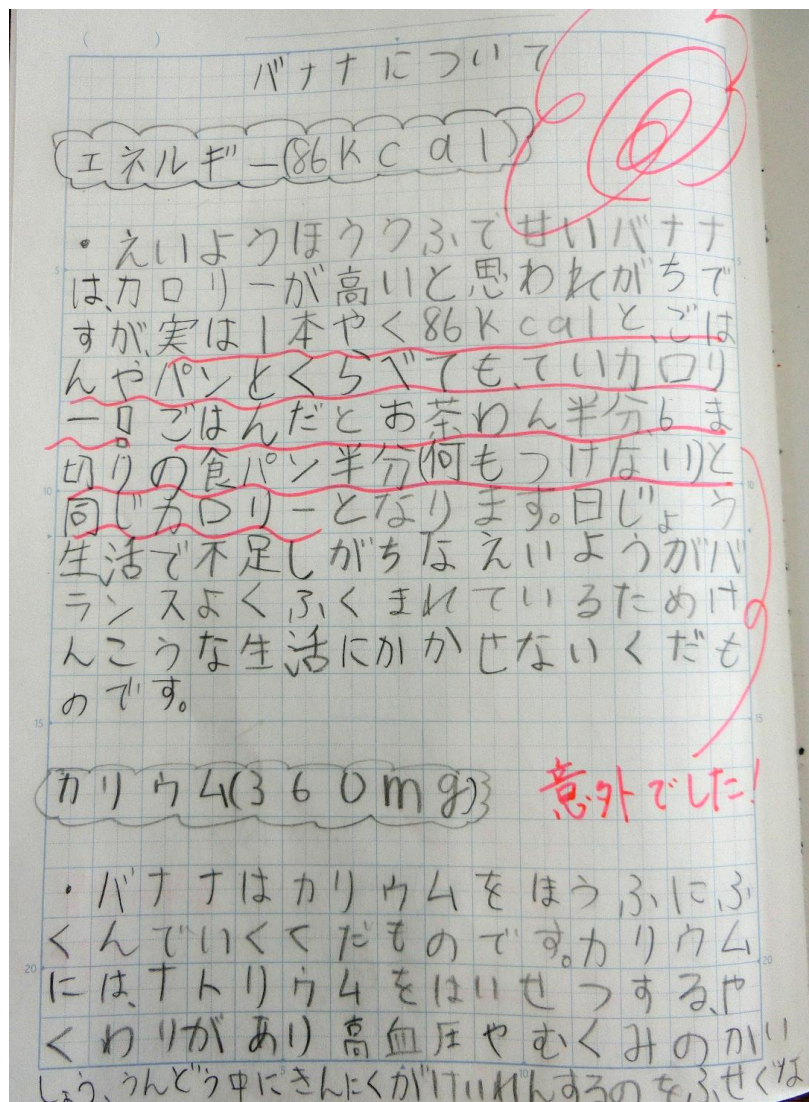 バナナについて
エネルギー(86kcal)
・えいようほうふで甘いバナナ
は、カロリーが高いと思われがちで
すが、実は1本やく86kcalと、ごは
んやパンとくらべても、ていカロリ
ー。ごはんだとお茶わん半分、6ま
切りの食パン半分(何もつけない)と
同じカロリーとなります。日じょう
生活で不足しがちなえいようがバ
ランスよくふくまれているためけ
んこうな生活にかかせないくだも
のです。
意外でした!
カリウム(360mg)
・バナナはカリウムをほうふにふ
くんでいくくだものです。カリウム
には、ナトリウムをはいせつする、や
くわりがあり高血圧やむくみのかい
しょう、うんどう中にきんにくがけいれんするのをふせぐ